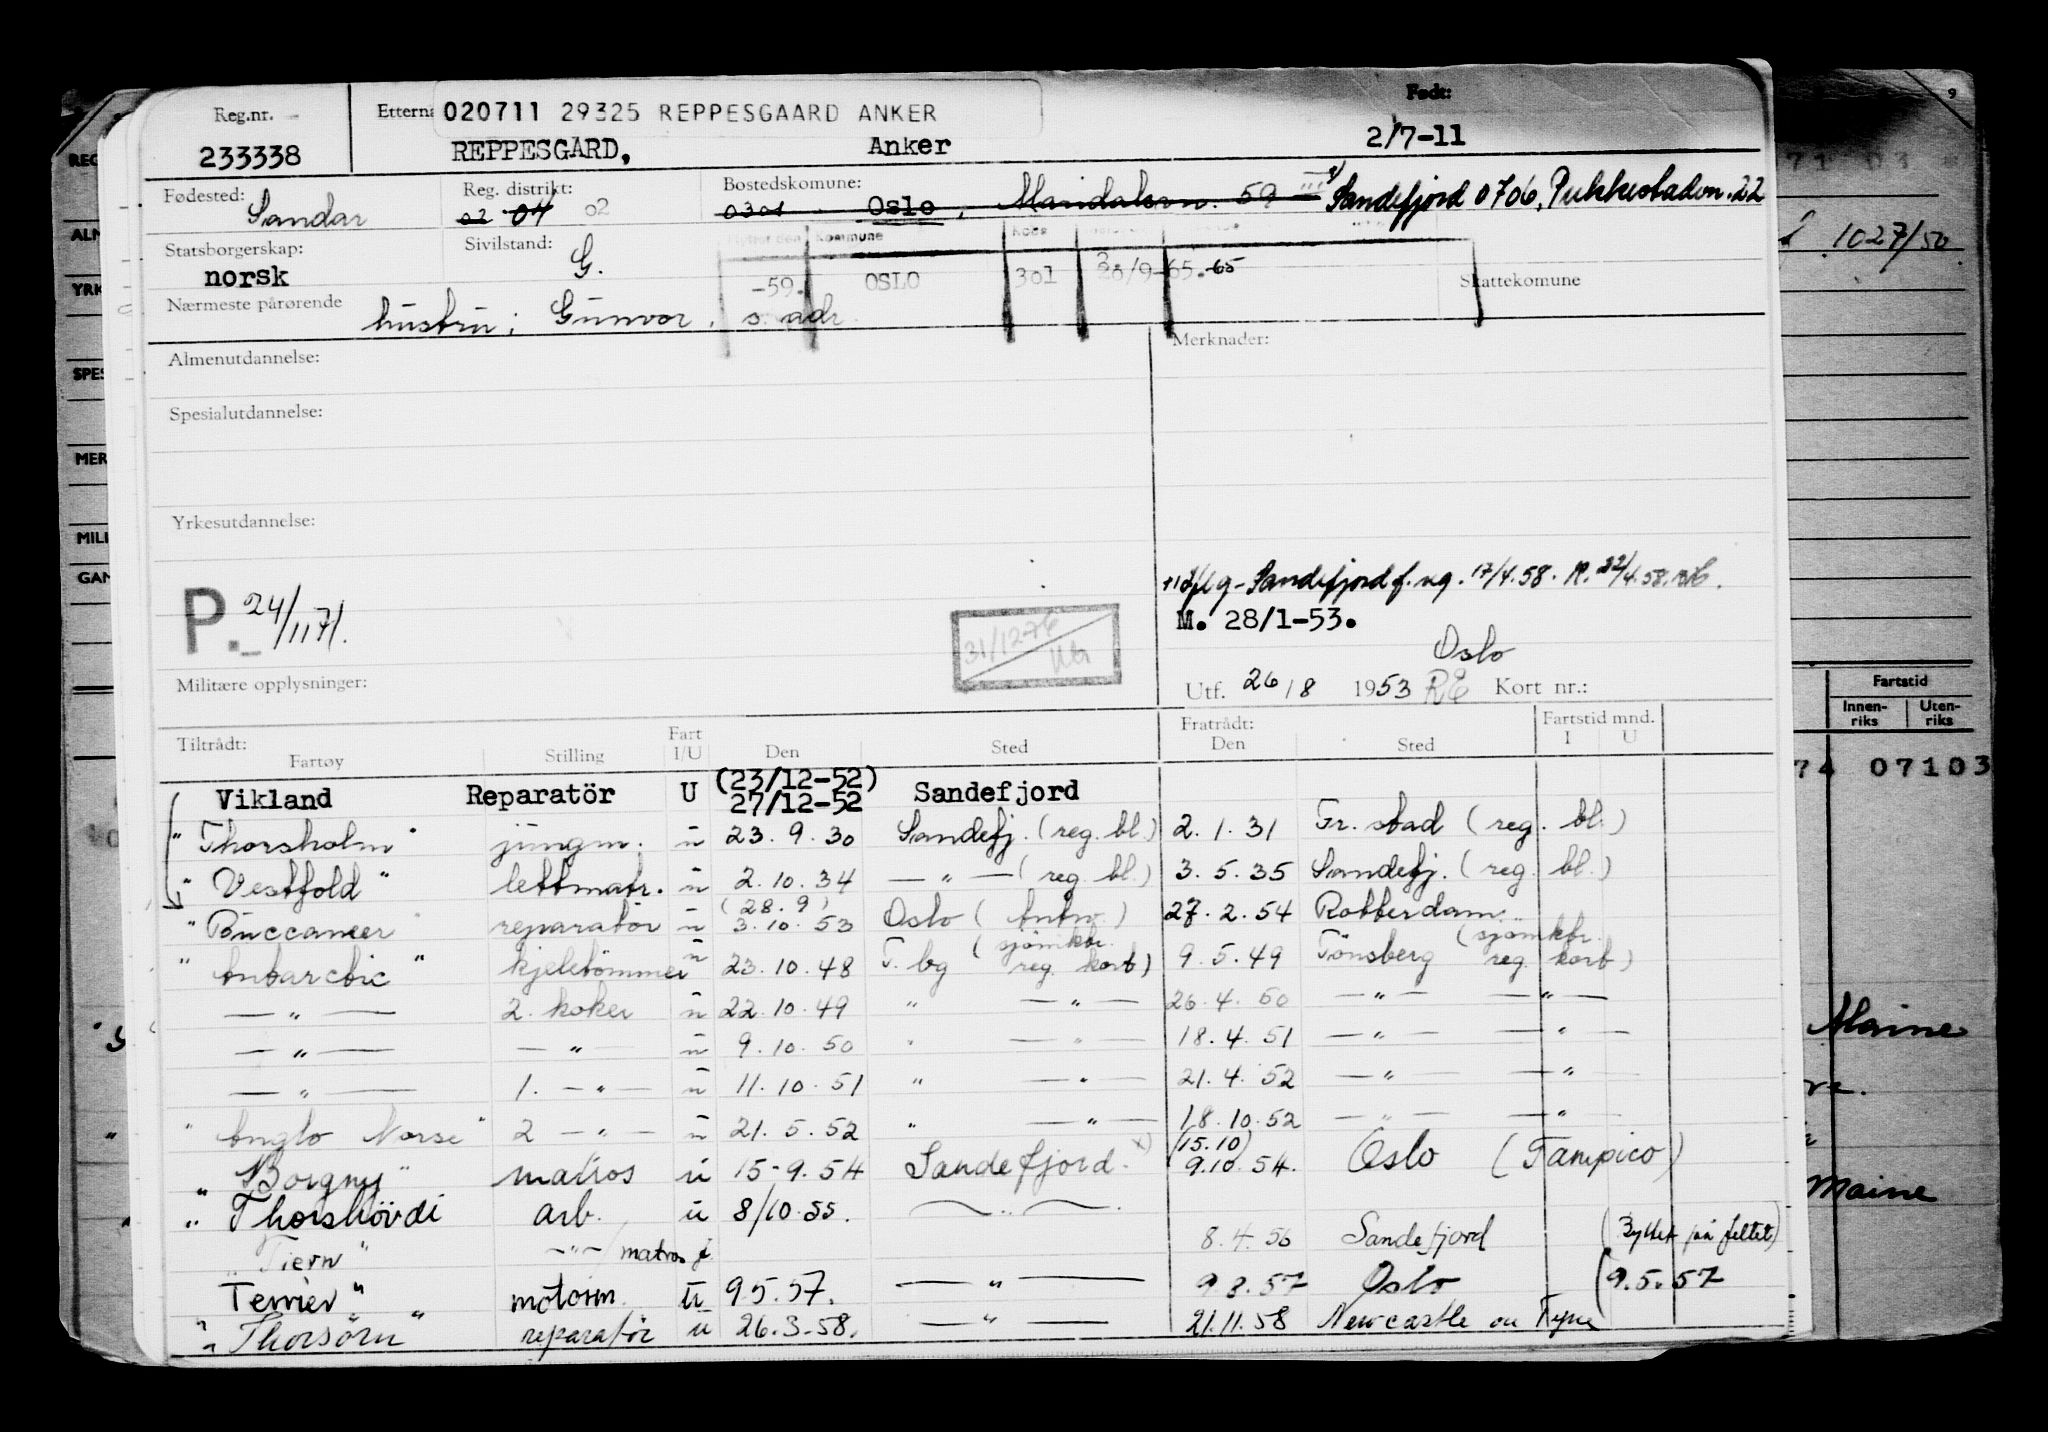 Reg.nr. Etterna 020711 29325 REPPESGAARD ANKER Født: 9
233338 REPPESGARD, Anker 2/7-11
Fødested: Sandar Reg. distrikt: 02 04 02 Bostedskomune: 0301 Oslo, Maridalsvn. 59 Sandefjord 0706, Pukkestadvn. 22
Statsborgerskap: norsk Sivilstand: G. Kommune
-59. OSLO 301 65 Skattekomune 1027/50
Nærmeste pårørende hustru: Gunvor, s. adr.
Almenutdannelse: Merknader:
Spesialutdannelse:
Yrkesutdannelse:
Sandefjord f. 17/4.58. 22/4.58.
P. 24/1171. 31/12-76 M. 28/1-53.
Oslo
Militære opplysninger: Utf. 26/8 1953 RE Kort nr.:
Fartstid
Innen-riks Uten-riks
Tiltrådt: Fratrådt: Fartstid mnd.
Fartøy Stilling Fart I/U Den Sted Den Sted I U
74 07103
Vikland Reparatör U (23/12-52) 27/12-52 Sandefjord
"Thorsholm" jungm. u 23.9.30 Sandefj. (reg. bl.) 2.1.31 Fr.stad (reg. bl.)
"Vestfold" lettmatr. u 2.10.34 — " — (reg. bl.) 3.5.35 Sandefj. (reg. bl.)
"Buccaneer" reparatör u (28.9) 3.10.53 Oslo (Antw.) 27.2.54 Rotterdam
"Antarctic" kjeletömmer u 23.10.48 T.bg (sjömktr. reg. kort) 9.5.49 Tönsberg (sjömktr. reg. kort)
— " — 2. koker u 22.10.49 " — " — 26.4.50 — " — — " —
— " — — " — u 9.10.50 " — " — 18.4.51 — " — — " —
— " — 1. — " — u 11.10.51 " — " — 21.4.52 — " — — " —
"Anglo Norse" 2 — " — u 21.5.52 " — " — 18.10.52 — " — — " —
"Borgny" matros u 15-9.54 Sandefjord. x) (15.10) 9.10.54. Oslo (Tampico)
"Thorshövdi arb. u 8/10.55. — " —
"Tiern" — " — / matros 8.4.56 Sandefjord (Byttet på feltet)
Terrier" motorm. u 9.5.57. — " — 9.8.57 Oslo (9.5.57
"Thorsörn" reparatör u 26.3.58. — " — 21.11.58 Newcastle on Tyne
REG
ALM
YRK
SPES
MER
MILI
GAN
Maine
Maine